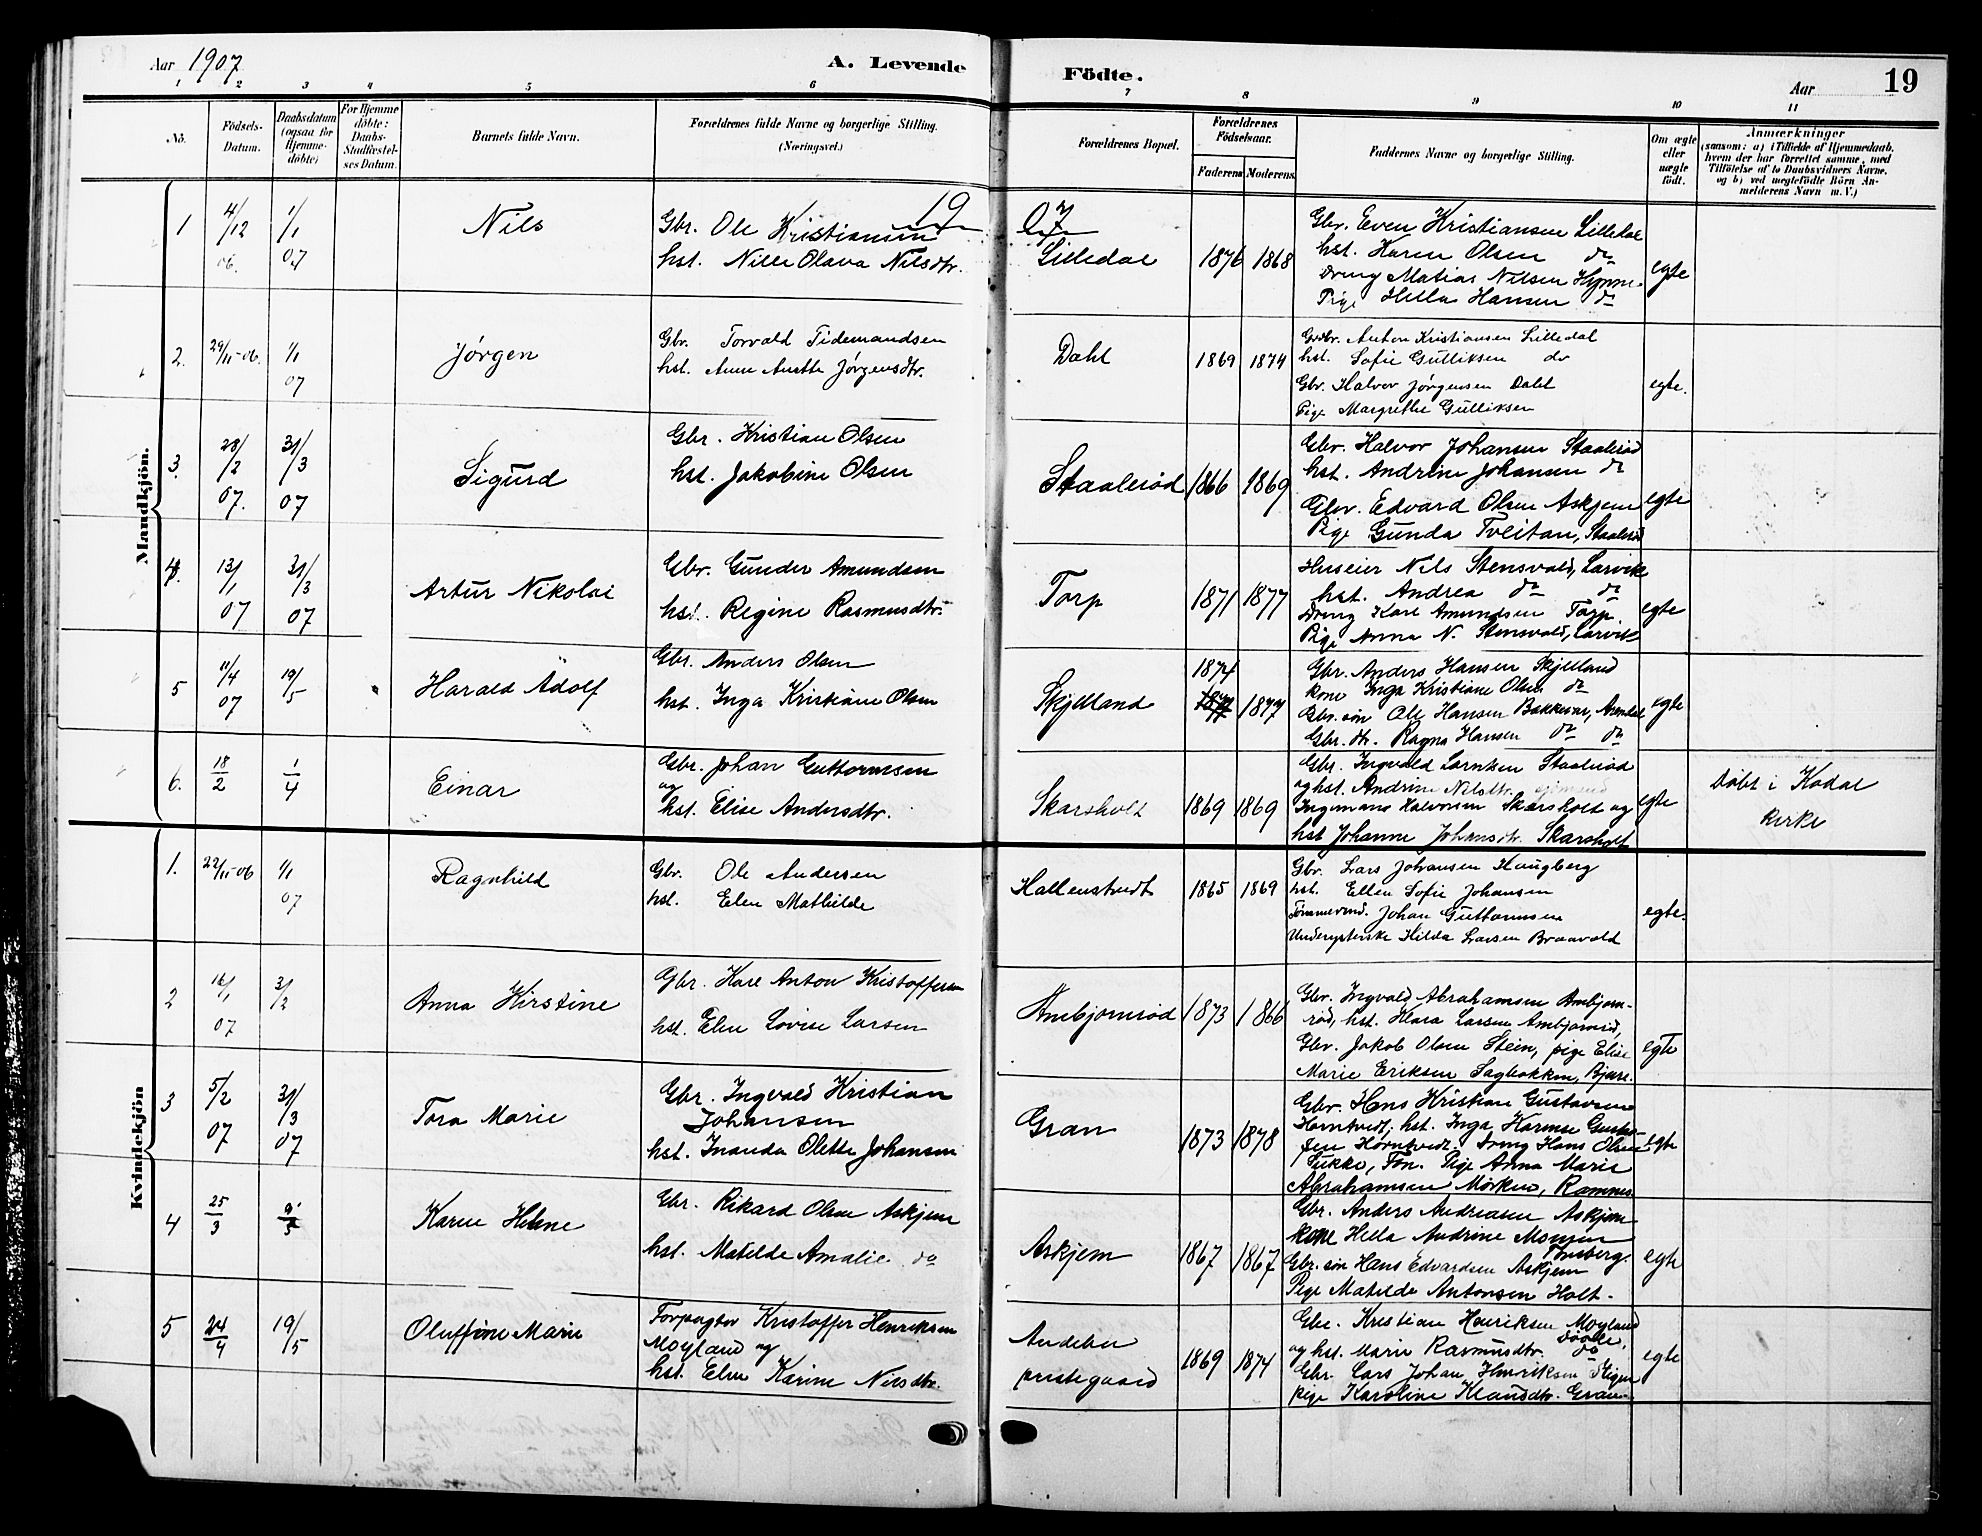 Aar 1907 A. Levende Födte. Aar 19
1 2 3 4 5 6 7 8 9 10 11
No.
Födsels-Datum.
Daabsdatum (ogsaa for Hjemme-döbte)
For Hjemme döbte: Daabs-Stadfæstel-ses Datum.
Barnets fulde Navn.
Forældrenes fulde Navne og borgerlige Stilling.
(Næringsvei.)
Forældrenes Bopæl.
Forældrenes Födselsaar.
Faderens Moderens
Faddernes Navne og borgerlige Stilling.
Om ægte eller uægte födt.
Anmærkninger
(saasom: a) i Tilfælde af Hjemmedaab, hvem der har forrettet samme, med Tilföielse af to Daabsvidners Navne, og b) ved uegtefödte Börn An-melderens Navn m. V.)
19 07
Mandkjön.
1 4/12 06. 1/1 07 Nils
Gbr. Ole Kristiansen
hst. Nille Olava Nilsdtr.
Lilledal 1876 1868
Gbr. Even Kristiansen Lilledal
hst. Karen Olsen do
Dreng Matias Nilsen Hynne
Pige Hella Hansen do
egte
2. 29/11-06. 1/1 07 Jørgen
Gbr. Torvald Tidemandsen
hst. Anne Anette Jørgensdtr.
Dahl 1869 1874
Gbr. Anton Kristiansen Lilledal
hst. Sofie Gulliksen do
Gbr. Halvor Jørgensen Dahl
Pige Margrethe Gulliksen
egte.
3. 28/2 07. 31/3 07 Sigurd
Gbr. Kristian Olsen
hst. Jakobine Olsen
Staalerød 1866 1869
Gbr. Halvor Johansen Staalerød
hst. Andrine Johansen do
Gbr. Edvard Olsen Askjem
Pige Gunda Tveitan, Staalerød
egte
4. 13/1 07 31/3 07 Artur Nikolai
Gbr. Gunder Amundsen
hst. Regine Rasmusdtr.
Torp 1871 1877
Huseier Nils Stensvold, Larvik
hst. Andrea do do
Dreng Karl Amundsen Torp.
Pige Anna N. Stensvold, Larvik
egte
5 11/4 07 19/5 Harald Adolf
Gbr. Anders Olsen
hst. Inga Kristiane Olsen
Skjelland 1874 1877
Gbr. Anders Hansen Skjelland
kone Inga Kristiane Olsen do
Gbr. søn Ole Hansen Bakkevar, Arendal
Gbr. dtr. Ragna Hansen do do
egte
6. 18/2 1/4 Einar
Gbr. Johan Guttormsen
og
hst. Elise Andersdtr.
Skarsholt 1869 1869
Gbr. Ingvald Larntzen Staalerød
og hst. Andrine Nilsdtr.
Ingemann Halvorsen Skarsholt og
hst Johanne Johansdtr. Skarsholt
egte
Døbt i Kodal
kirke
Kvindekjön
1. 22/11-06 1/1 07 Ragnhild
Gbr. Ole Andersen
hst. Elen Mathilde
Hallenstvedt 1865 1869
Gbr. Lars Johansen Haugberg
hst. Ellen Sofie Johansen
Tømmermd. Johan Guttormsen
Underjsterske Hilda Larsen Braavold
egte.
2 16/1 07 3/2 Anna Kirstine
Gbr. Karl Anton Kristoffersen
hst. Elen Lovise Larsen
Ambjørnrød 1873 1866
Gbr. Ingvald Abrahamsen Ambjørn-
rød, hst. Klara Larsen Ambjørnrød,
Gbr. Jakob Olsen Stein, pige Elise
Marie Eriksen Sagbakken, Bjure.
egte
3 5/2 07 31/3 07 Tora Marie
Gbr. Ingvald Kristian
Johansen
hst. Inanda Olette Johansen
Gran 1873 1878
Gbr. Hans Kristian Gustavsen
Horntvedt, hst. Inga Karense Gustav-
sen Horntvedt. Dreng Hans Olsen
Sukke, Føn. Pige Anna Marie
Abrahamsen Mørken, Ramnes
egte
4 25/3 9/5 Karen Helene
Gbr. Rikard Olsen Askjem
hst. Matilde Amalie do
Askjem 1867 1867
Gbr. Anders Andreasen Askjem
kone Hella Andrine Monsen
Tønsberg.
Gbr. søn Hans Edvardsen Askjem
Pige Matilde Antonsen Holt.
egte
5 24/4 19/5 Oluffine Marie
Forpagter Kristoffer Henriksen
Moyland og
hst. Elen Karine Nilsdtr.
Andebu
prestegaard 1869 1874
Gbr. Kristian Henriksen Moyland
og hst. Marie Rasmusdtr. do
Gbr. Lars Johan Henriksen
pige Karoline Klausdtr. Gravn
egte